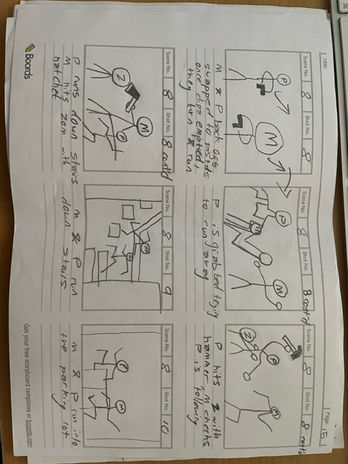 Title:
Page: 15
Scene No. 8 Shot No. 8
Scene No. 8 Shot No. 8 cont'd
Scene No. 8 Shot No. 8
P
M
P
M
P
M
Z
M & P back
once clips emptied,
they turn & run
P is grabbed trying
to run away
P hits Z with
hammer M checks
P is following
Scene No. 8 Shot No. 8 cont'd
Scene No. 8 Shot No. 9
Scene No. 8 Shot No. 10
Z
M
P
P runs down stairs
M hits Zom with
hatchet
M & P run
down stairs
M & P run into
the parking lot
Boords
Get your free storyboard templates at boords.com